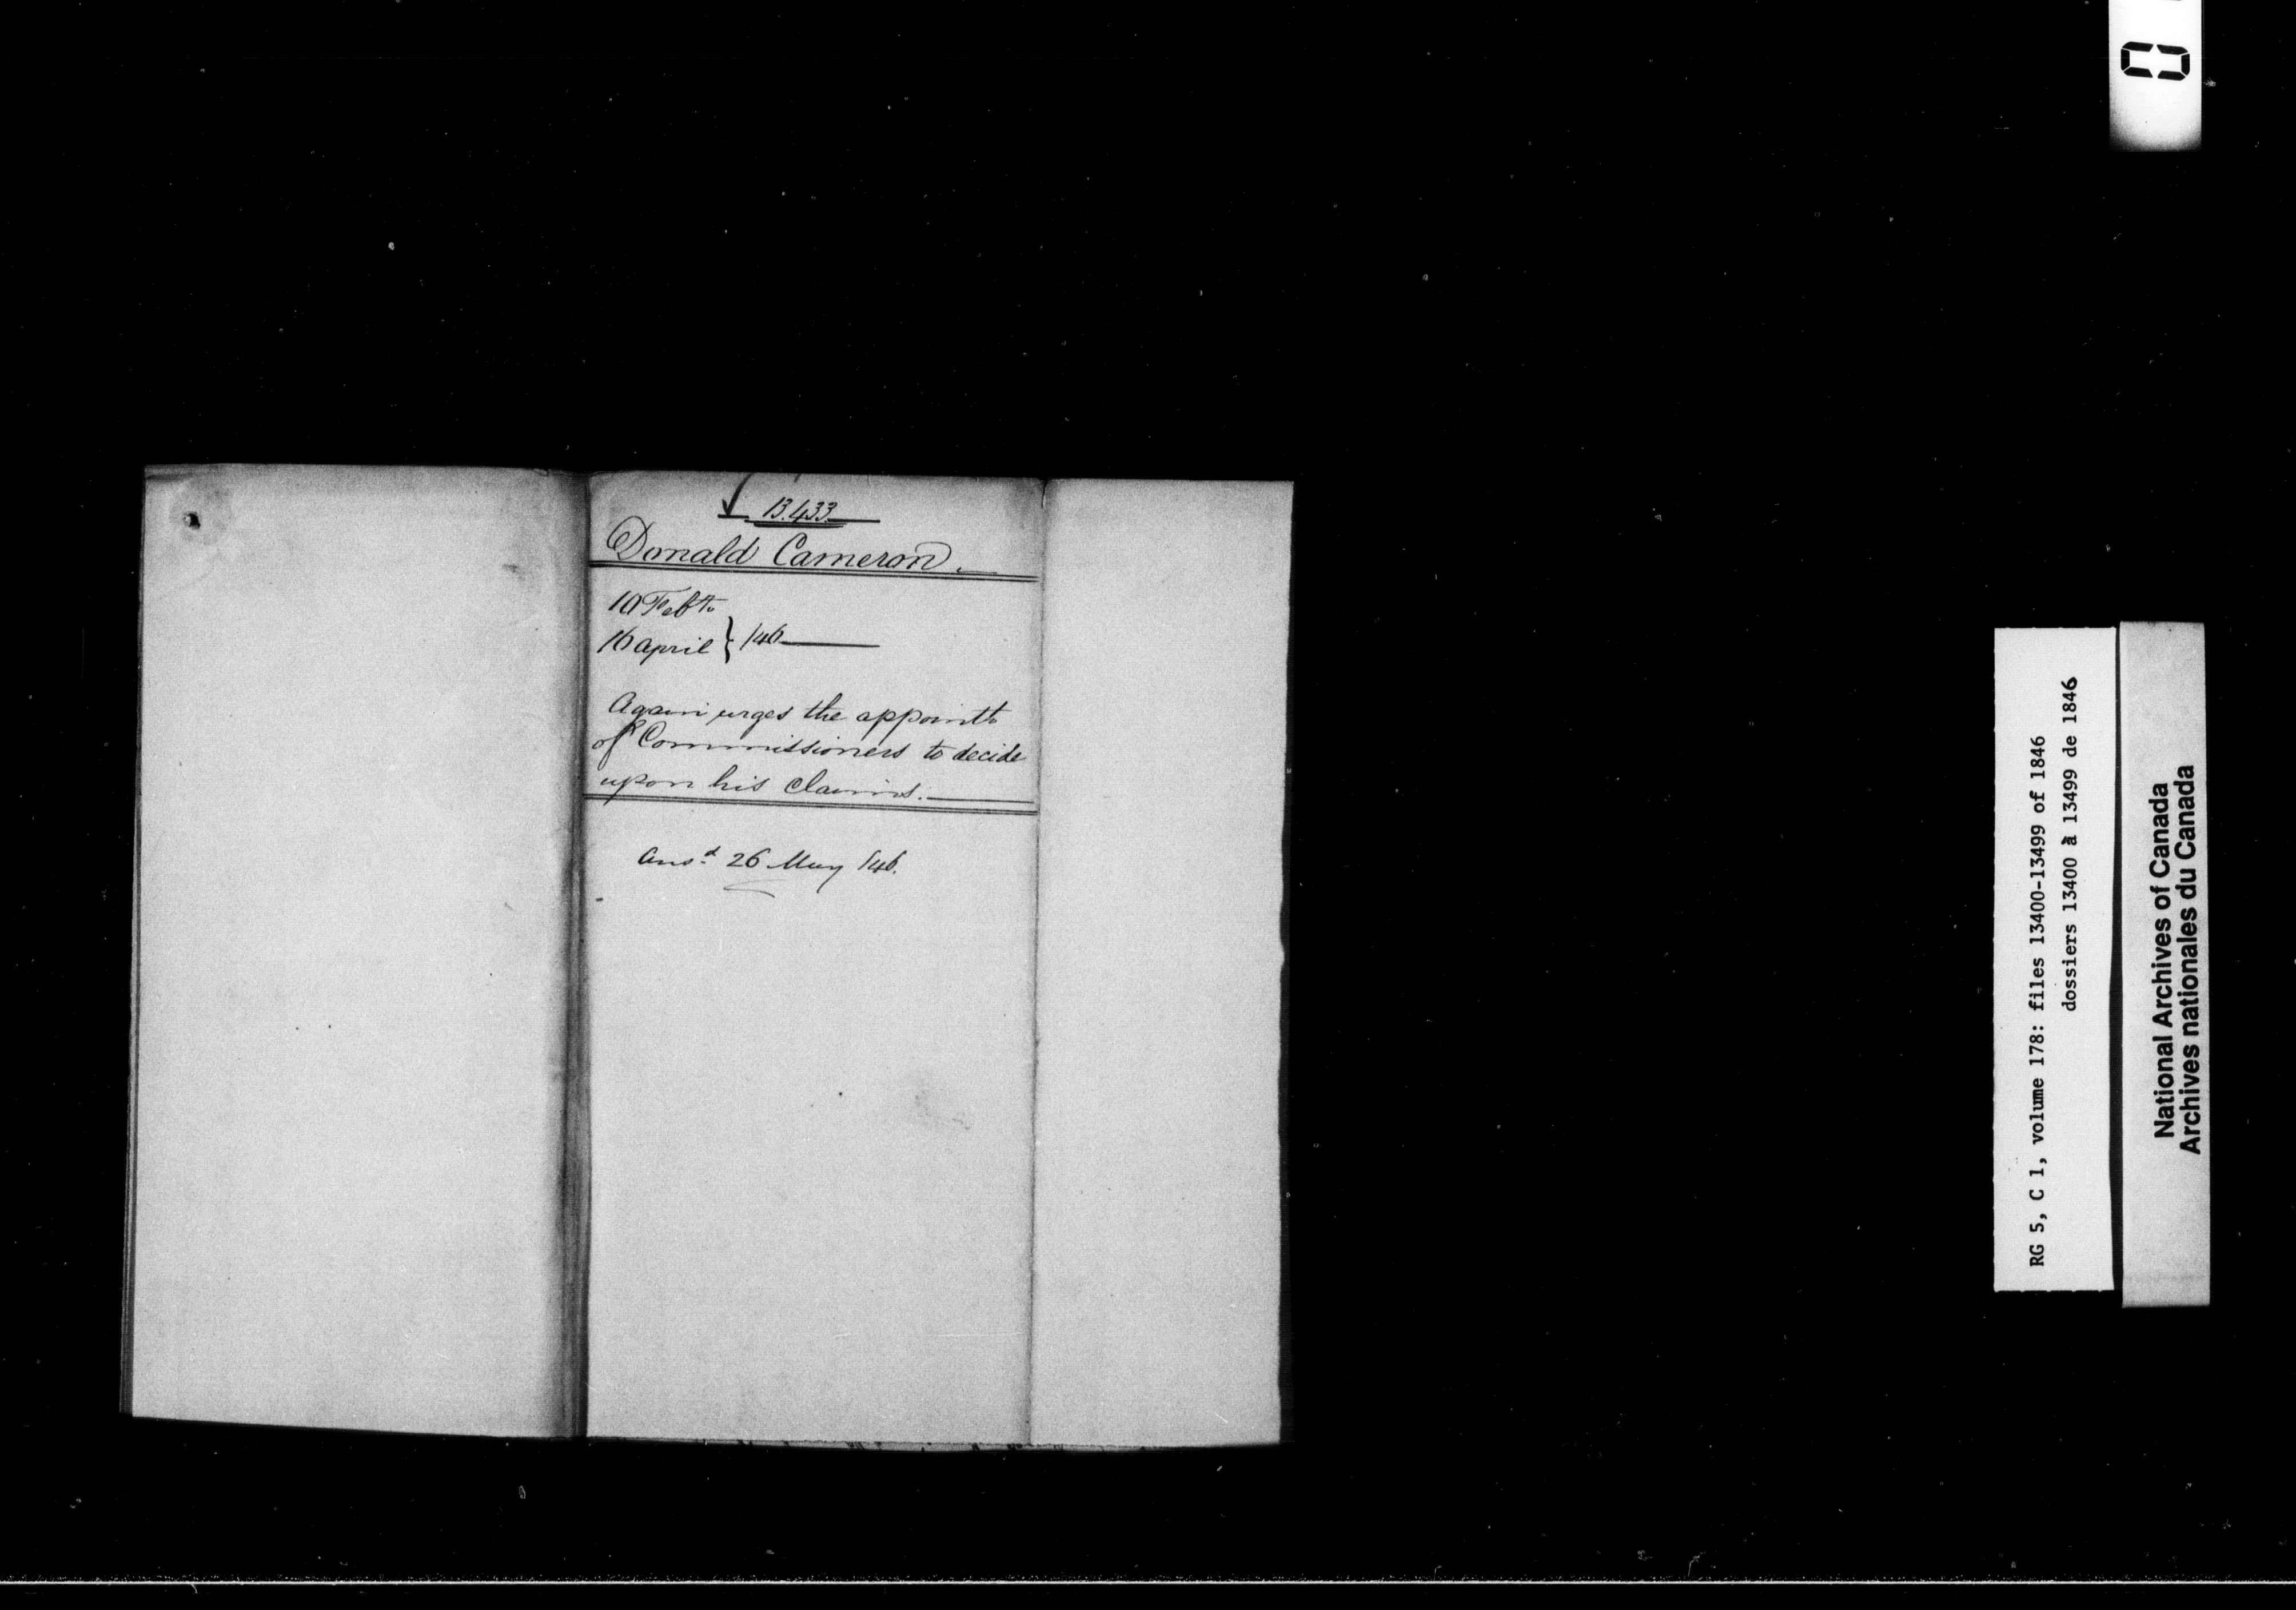 13.433
Donald Cameron.
10 Feb to
16 April } /46
Again urges the appointt
of Commissioners to decide
upon his claims.
Ansd 26 May /46.
RG 5, C 1, volume 178: files 13400-13499 of 1846
dossiers 13400 à 13499 de 1846
National Archives of Canada
Archives nationales du Canada